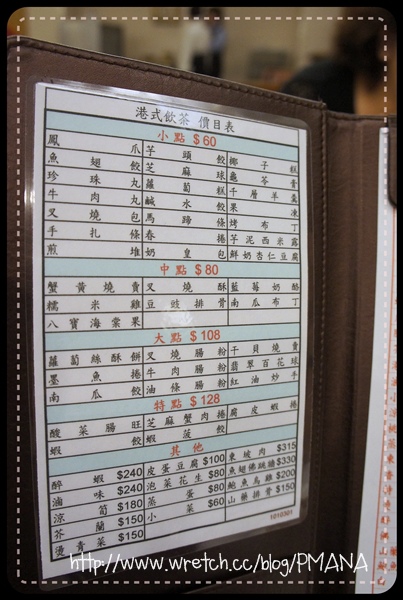 港式飲茶 價目表
小點 $60
鳳爪 芋頭餃 椰子糕
魚翅餃 芝麻球 龜苓膏
珍珠丸 蘿蔔糕 千層羊羹
牛肉丸 鹹水餃 果凍
叉燒包 馬蹄條 烤布丁
手扎條 春捲 芋泥西米露
煎堆 奶皇包 鮮奶杏仁豆腐
中點 $80
蟹黃燒賣 叉燒酥 藍莓奶酪
糯米雞 豆豉排骨 南瓜布丁
八寶海棠果
大點 $108
蘿蔔絲酥餅 叉燒腸粉 干貝燒賣
墨魚捲 牛肉腸粉 翡翠百花球
南瓜餃 油條腸粉 紅油炒手
特點 $128
酸菜腸旺 芝麻蟹肉捲 腐皮蝦捲
蝦餃 蝦菠餃
其他
醉蝦 $240 皮蛋豆腐 $100 東坡肉 $315
滷味 $240 泡菜花生 $80 魚翅佛跳牆 $330
涼筍 $180 蒸蛋 $80 鮑魚烏雞 $200
芥蘭 $150 小菜 $60 山藥排骨 $150
燙青菜 $50
http://www.wretch.cc/blog/PMANA